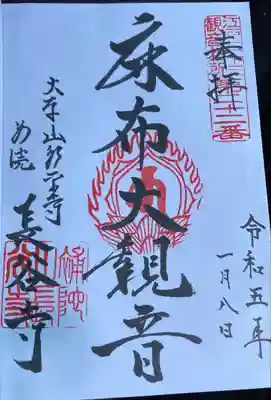 奉拝
江戸三十三
観音札所第二十二番
麻布大観音
令和五年
一月八日
大本山永平寺
別院
長谷寺